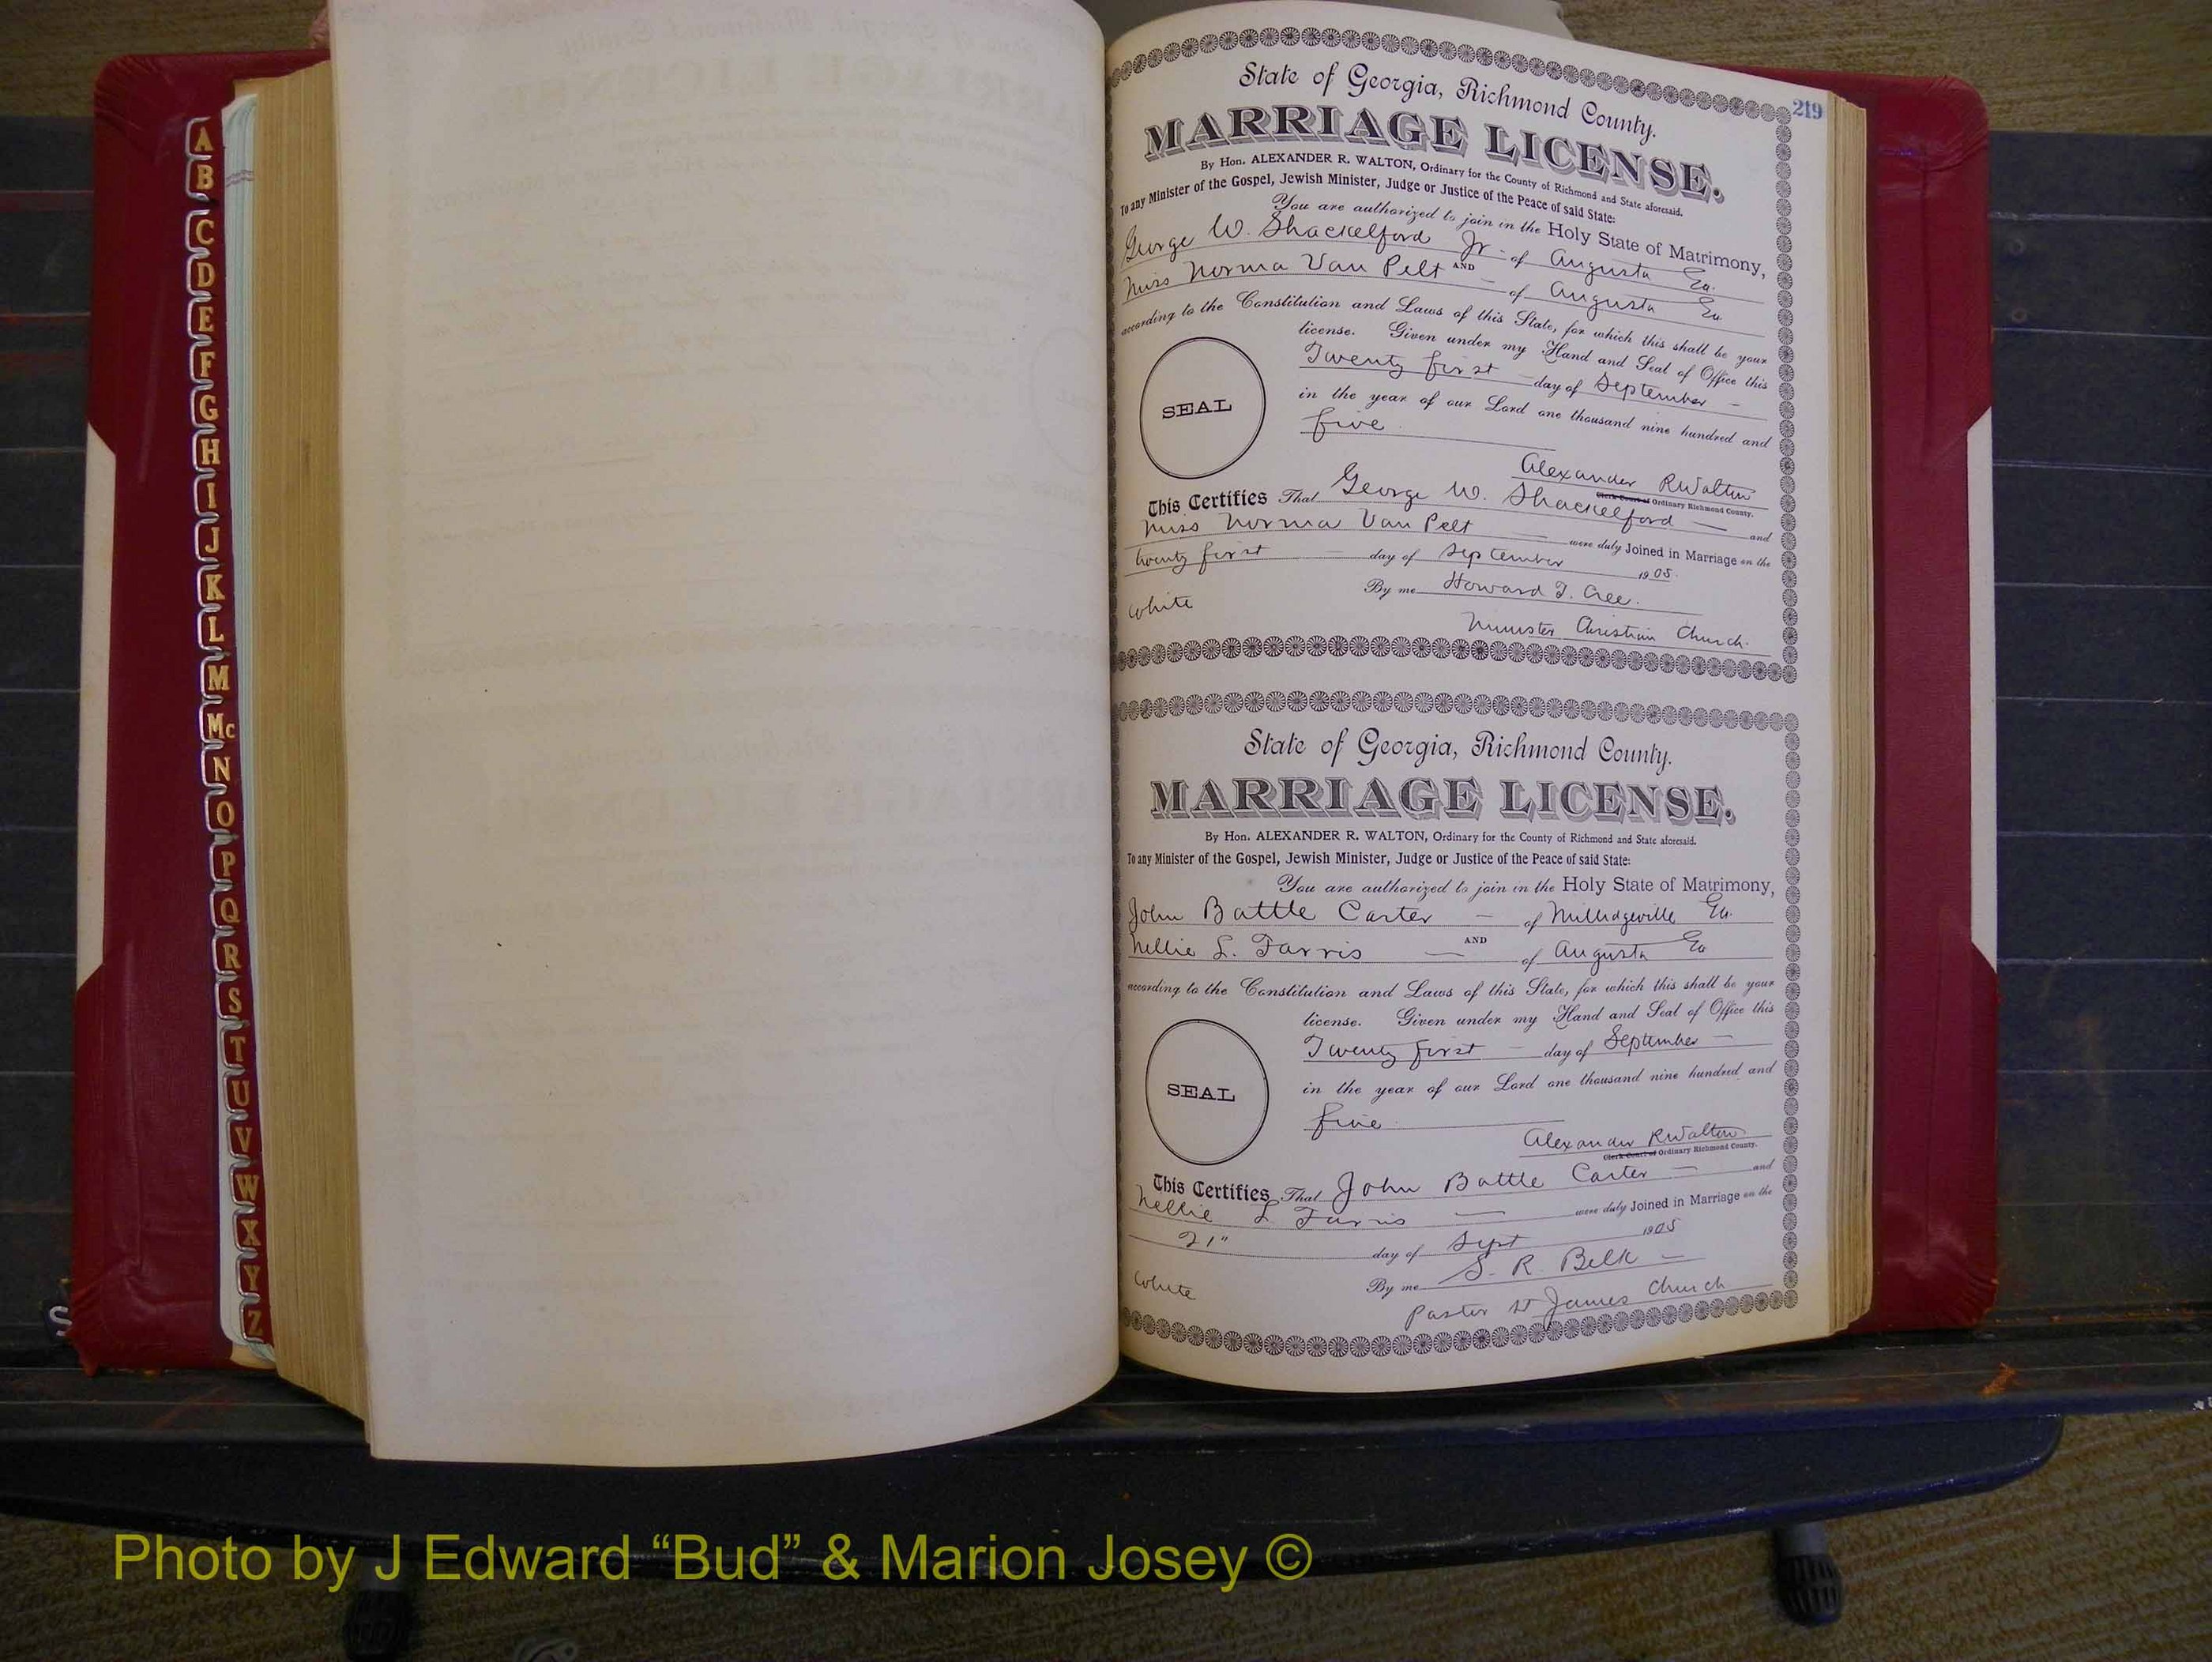 A
B
C
D
E
F
G
H
I
J
K
L
M
Mc
N
O
P
Q
R
S
T
U
V
W
X
Y
Z
219
State of Georgia, Richmond County.
MARRIAGE LICENSE.
By Hon. ALEXANDER R. WALTON, Ordinary for the County of Richmond and State aforesaid.
To any Minister of the Gospel, Jewish Minister, Judge or Justice of the Peace of said State:
You are authorized to join in the Holy State of Matrimony,
George W. Shackelford Jr - of Augusta Ga.
AND
Miss Norma Van Pelt - of Augusta Ga
according to the Constitution and Laws of this State, for which this shall be your
license. Given under my Hand and Seal of Office this
Twenty first - day of September -
in the year of our Lord one thousand nine hundred and
five
SEAL
Alexander R Walton
Clerk Court of Ordinary Richmond County.
This Certifies That George W. Shackelford - and
Miss Norma Van Pelt - were duly Joined in Marriage on the
twenty first - day of September 1905.
By me Howard T. Cree.
White
Minister Christian Church.
State of Georgia, Richmond County.
MARRIAGE LICENSE.
By Hon. ALEXANDER R. WALTON, Ordinary for the County of Richmond and State aforesaid.
To any Minister of the Gospel, Jewish Minister, Judge or Justice of the Peace of said State:
You are authorized to join in the Holy State of Matrimony,
John Battle Carter - of Milledgeville Ga.
AND
Nellie L. Farris - of Augusta Ga
according to the Constitution and Laws of this State, for which this shall be your
license. Given under my Hand and Seal of Office this
Twenty first - day of September -
in the year of our Lord one thousand nine hundred and
five
SEAL
Alexander R Walton
Clerk Court of Ordinary Richmond County.
This Certifies That John Battle Carter - and
Nellie L Farris - were duly Joined in Marriage on the
21" day of Sept 1905
By me S. R. Belk -
White
Pastor St James Church
Photo by J Edward “Bud” & Marion Josey ©